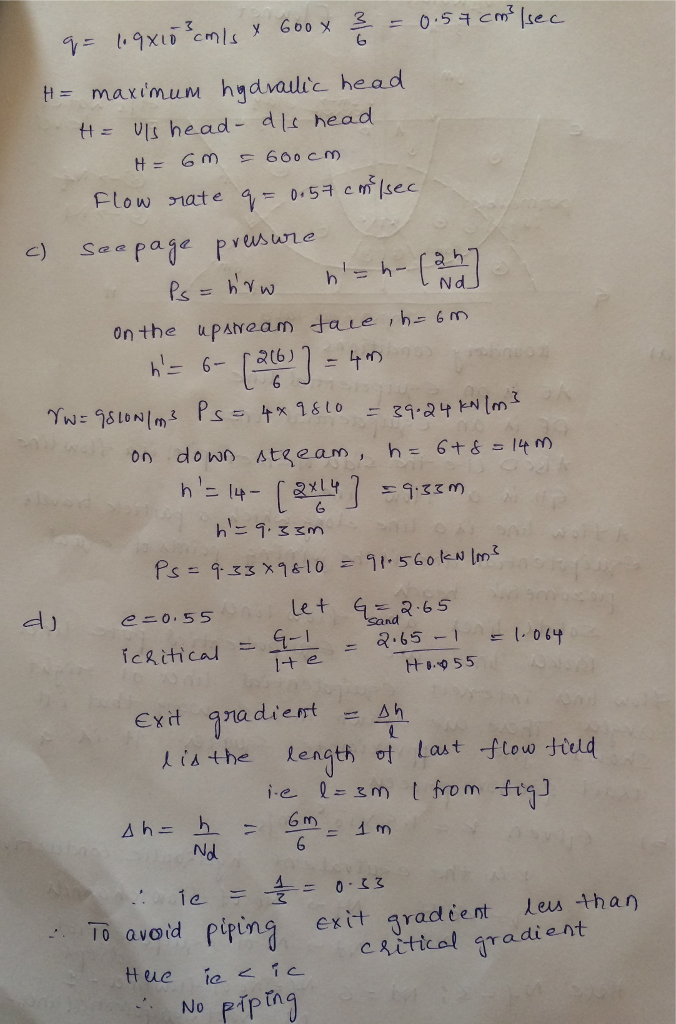 q = 1.9x10⁻³ cm/s x 600 x 3/6 = 0.57 cm³/sec
H = maximum hydraulic head
H = U/s head - d/s head
H = 6m = 600cm
Flow rate q = 0.57 cm³/sec
c) Seepage pressure
Ps = h'γw h' = h - [2h/Nd]
on the upstream face, h = 6m
h' = 6 - [2(6)/6] = 4m
γw = 9810N/m³ Ps = 4x9810 = 39.24 kN/m³
on down stream, h = 6+8 = 14m
h' = 14 - [2x14/6] = 9.33m
h' = 9.33m
Ps = 9.33x9810 = 91.560kN/m³
d) e=0.55 let Gsand = 2.65
icritical = G-1/1+e = 2.65-1/1+0.055 = 1.064
Exit gradient = Δh/l
l is the length of last flow field
i.e l = 3m (from fig]
Δh = h/Nd = 6m/6 = 1m
∴ ie = 1/3 = 0.33
∴ To avoid piping exit gradient less than critical gradient
Here ie < ic
∴ No piping